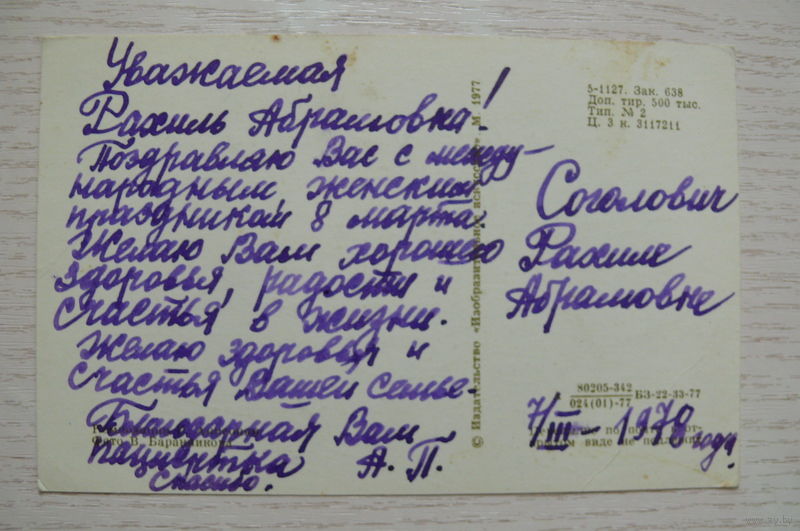 Уважаемая
Рахиль Абрамовна!
Поздравляю Вас с между-
народным женским
праздником 8 марта.
Желаю Вам хорошего
здоровья, радости и
счастья в жизни.
Желаю здоровья и
счастья Вашей семье.
Благодарная Вам
пациентка А. П.
Спасибо.
Фото В. Баранникова
© Издательство «Изобразительное искусство». М. 1977
5-1127. Зак. 638
Доп. тир. 500 тыс.
Тип. № 2
Ц. 3 к. 3117211
Соголович
Рахиль
Абрамовне
80205-342
024(01)-77
БЗ-22-33-77
7/III 1978 года.
виде не
www.ay.by